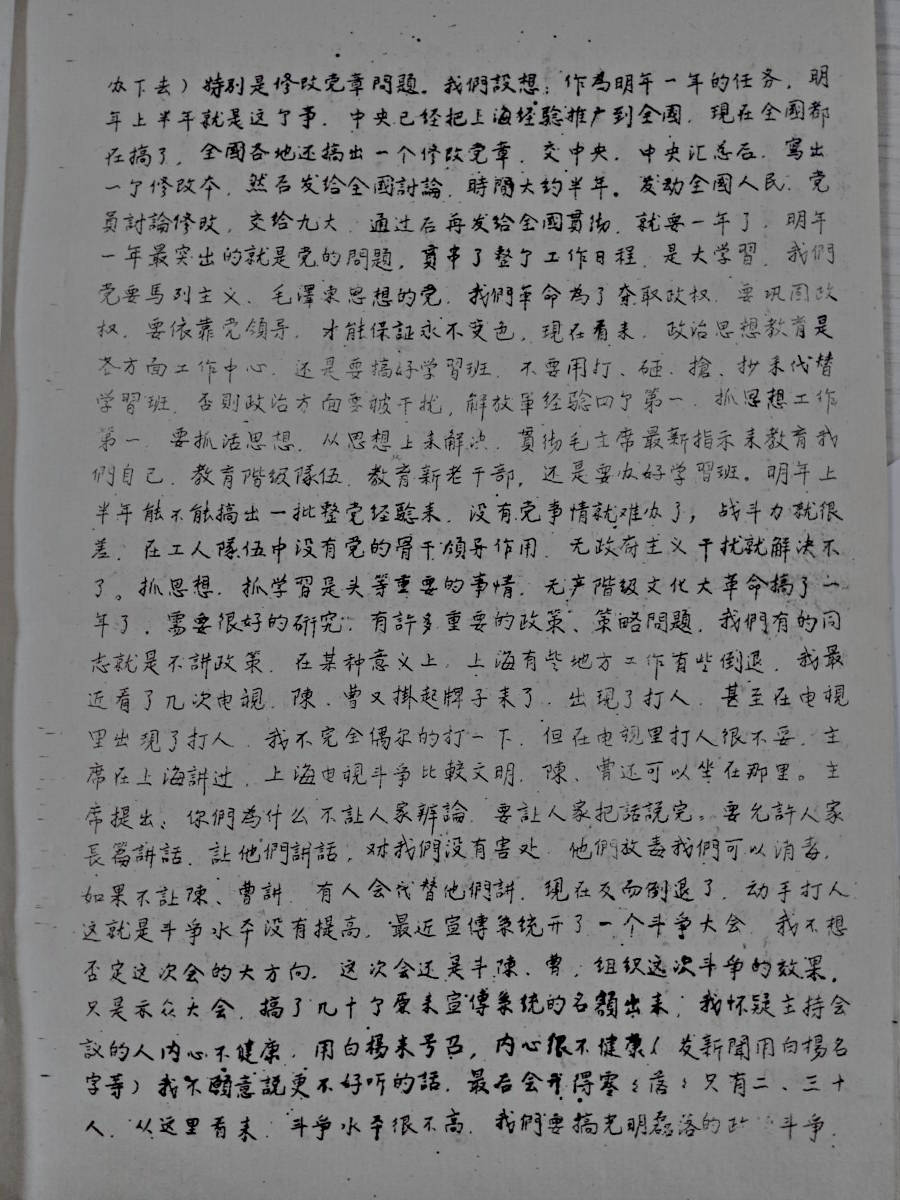 办下去）特别是修改党章問題。我們設想：作為明年一年的任务，明
年上半年就是这个事，中央已经把上海经驗推广到全國，現在全國都
在搞了，全國各地还搞出一个修改党章，交中央，中央汇总后，寫出
一个修改本，然后发给全國討論，時間大约半年。发动全國人民、党
員討論修改，交给九大，通过后再发给全國貫彻，就要一年了，明年
一年最突出的就是党的問題，貫串了整个工作日程，是大学習，我們
党要馬列主义、毛澤東思想的党，我們革命為了夺取政权，要巩固政
权，要依靠党領导，才能保証永不变色，現在看来，政治思想教育是
各方面工作中心，还是要搞好学習班，不要用打、砸、搶、抄来代替
学習班，否則政治方面要被干扰，解放軍经驗四个第一，抓思想工作
第一，要抓活思想，从思想上来解决，貫彻毛主席最新指示来教育我
們自己，教育階级隊伍，教育新老干部，还是要办好学習班。明年上
半年能不能搞出一批整党经驗来，没有党事情就难办了，战斗力就很
差，在工人隊伍中没有党的骨干領导作用，无政府主义干扰就解决不
了。抓思想，抓学習是头等重要的事情，无产階级文化大革命搞了一
年了，需要很好的研究，有許多重要的政策、策略問題，我們有的同
志就是不講政策，在某种意义上，上海有些地方工作有些倒退，我最
近看了几次电視，陳、曹又掛起牌子来了，出現了打人，甚至在电視
里出現了打人，我不完全偶尔的打一下，但在电視里打人很不妥，主
席在上海講过，上海电視斗争比較文明，陳、曹还可以坐在那里。主
席提出：你們為什么不讓人家辨論，要讓人家把話說完。要允許人家
長篇講話，讓他們講話，对我們没有害处，他們放毒我們可以消毒，
如果不讓陳、曹講，有人会代替他們講，現在反而倒退了，动手打人
这就是斗争水平没有提高，最近宣傳系统开了一个斗争大会，我不想
否定这次会的大方向，这次会还是斗陳、曹，組织这次斗争的效果，
只是示众大会，搞了几十个原来宣傳系统的名額出来，我怀疑主持会
議的人内心不健康，用白楊来号召，内心很不健康（发新聞用白楊名
字等）我不願意說更不好听的話，最后会开得零々落々只有二、三十
人，从这里看来，斗争水平很不高，我們要搞光明磊落的政 斗争，